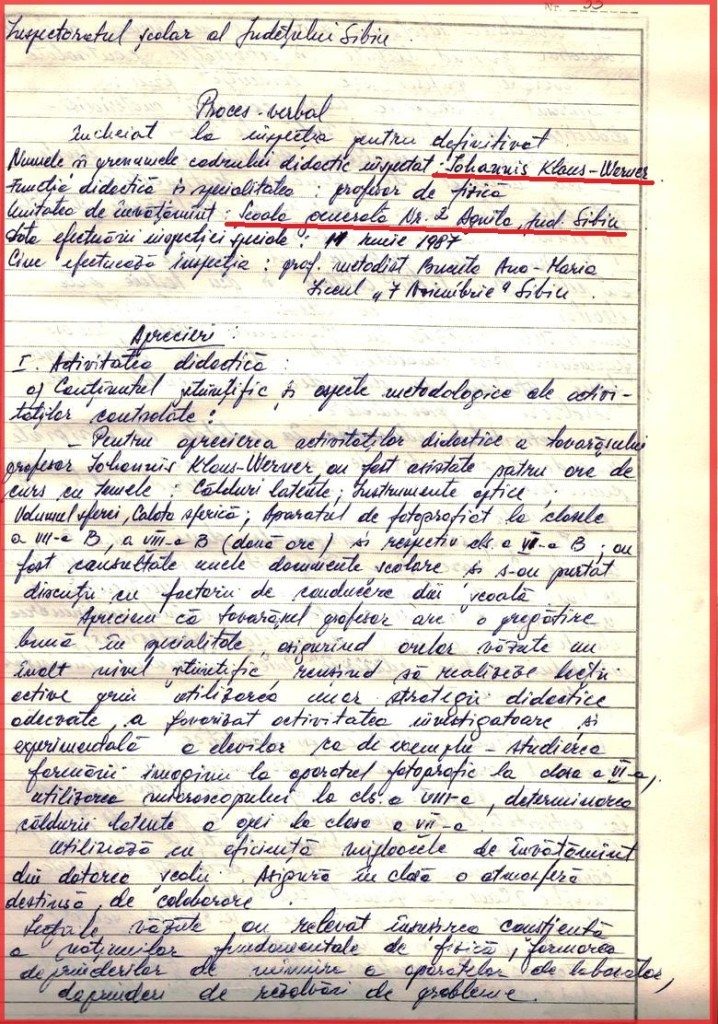 Nr. 53
Inspectoratul școlar al Județului Sibiu.
Proces-verbal
încheiat la inspecția pentru definitivat
Numele și prenumele cadrului didactic inspectat: Iohannis Klaus-Werner
Funcția didactică și specialitatea: profesor de fizică
Unitatea de învățămînt: Școala generală Nr. 2 Agnita, jud. Sibiu
Data efectuării inspecției speciale: 11 iunie 1987
Cine efectuează inspecția: prof. metodist Ana-Maria
Liceul „7 Noiembrie" Sibiu.
Aprecieri:
I. Activitatea didactică:
a) Conținutul științific și aspecte metodologice ale activi-
tăților controlate:
- Pentru aprecierea activităților didactice a tovarășului
profesor Iohannis Klaus-Werner au fost asistate patru ore de
curs cu temele: Călduri latente; Instrumente optice
Volumul sferei, Calota sferică; Aparatul de fotografiat la clasele
a VII-a B, a VIII-a B (două ore) și respectiv cls. a VI-a B; au
fost consultate unele documente școlare și s-au purtat
discuții cu factorii de conducere din școală
Apreciem că tovarășul profesor are o pregătire
bună în specialitate, asigurînd orelor văzute un
înalt nivel științific reușind să realizeze lecții
active prin utilizarea unor strategii didactice
adecvate, a favorizat activitatea investigatoare și
experimentală a elevilor ca de exemplu - studierea
formării imaginii la aparatul fotografic la clasa a VI-a,
utilizarea microscopului la cls. a VIII-a, determinarea
căldurii latente a gheții la clasa a VII-a
Utilizează cu eficiență mijloacele de învățămînt
din dotarea școlii. Asigură în clasă o atmosferă
destinsă, de colaborare.
Lecțiile văzute au relevat însușirea conștientă
a noțiunilor fundamentale de fizică, formarea
deprinderilor de mînuire a aparatelor de laborator,
deprinderi de rezolvări de probleme.